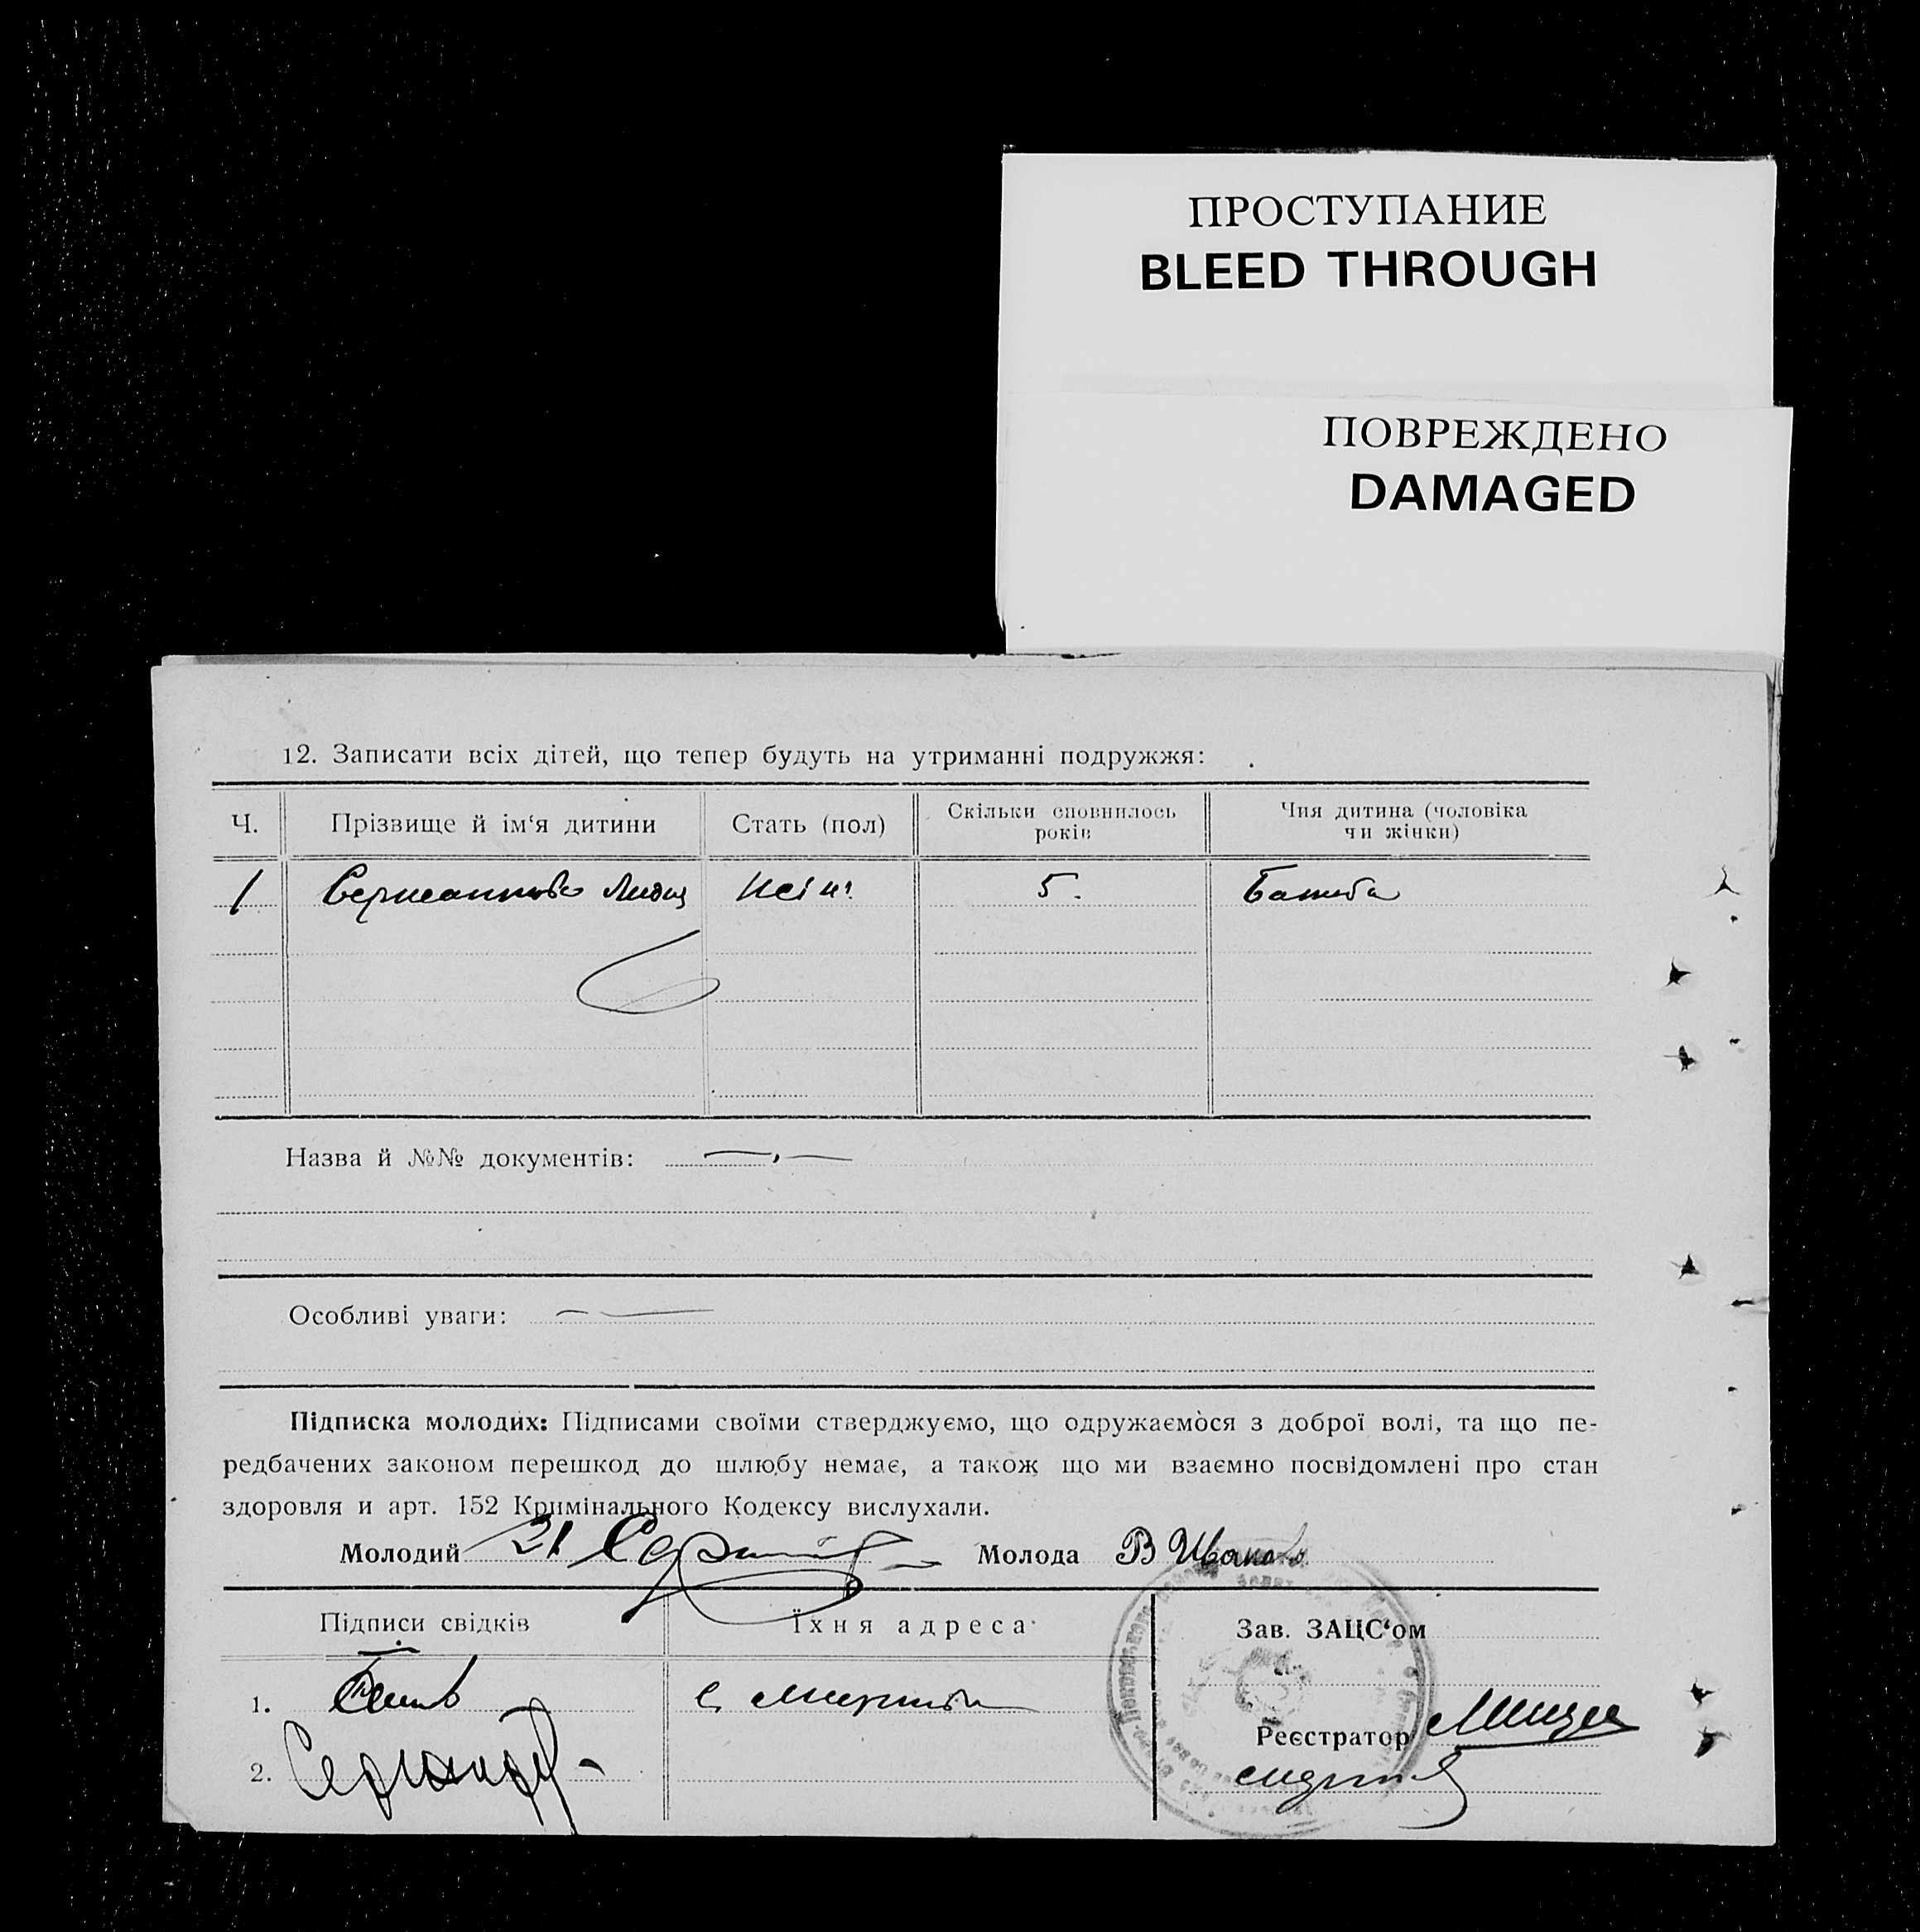 ПРОСТУПАНИЕ
BLEED THROUGH
ПОВРЕЖДЕНО
DAMAGED
12. Записати всіх дітей, що тепер будуть на утриманні подружжя:
Ч. Прізвище й ім‘я дитини Стать (пол) Скільки сповнилось років Чия дитина (чоловіка чи жінки)
1 Лидия 5.
Назва й №№ документів:
Особливі уваги:
Підписка молодих: Підписами своїми стверджуємо, що одружаємося з доброї волі, та що пе-
редбачених законом перешкод до шлюбу немає, а також що ми взаємно посвідомлені про стан
здоровля и арт. 152 Кримінального Кодексу вислухали.
Молодий 21 Молода В
Підписи свідків Їхня адреса Зав. ЗАЦС‘ом
1. с
Реєстратор
2.